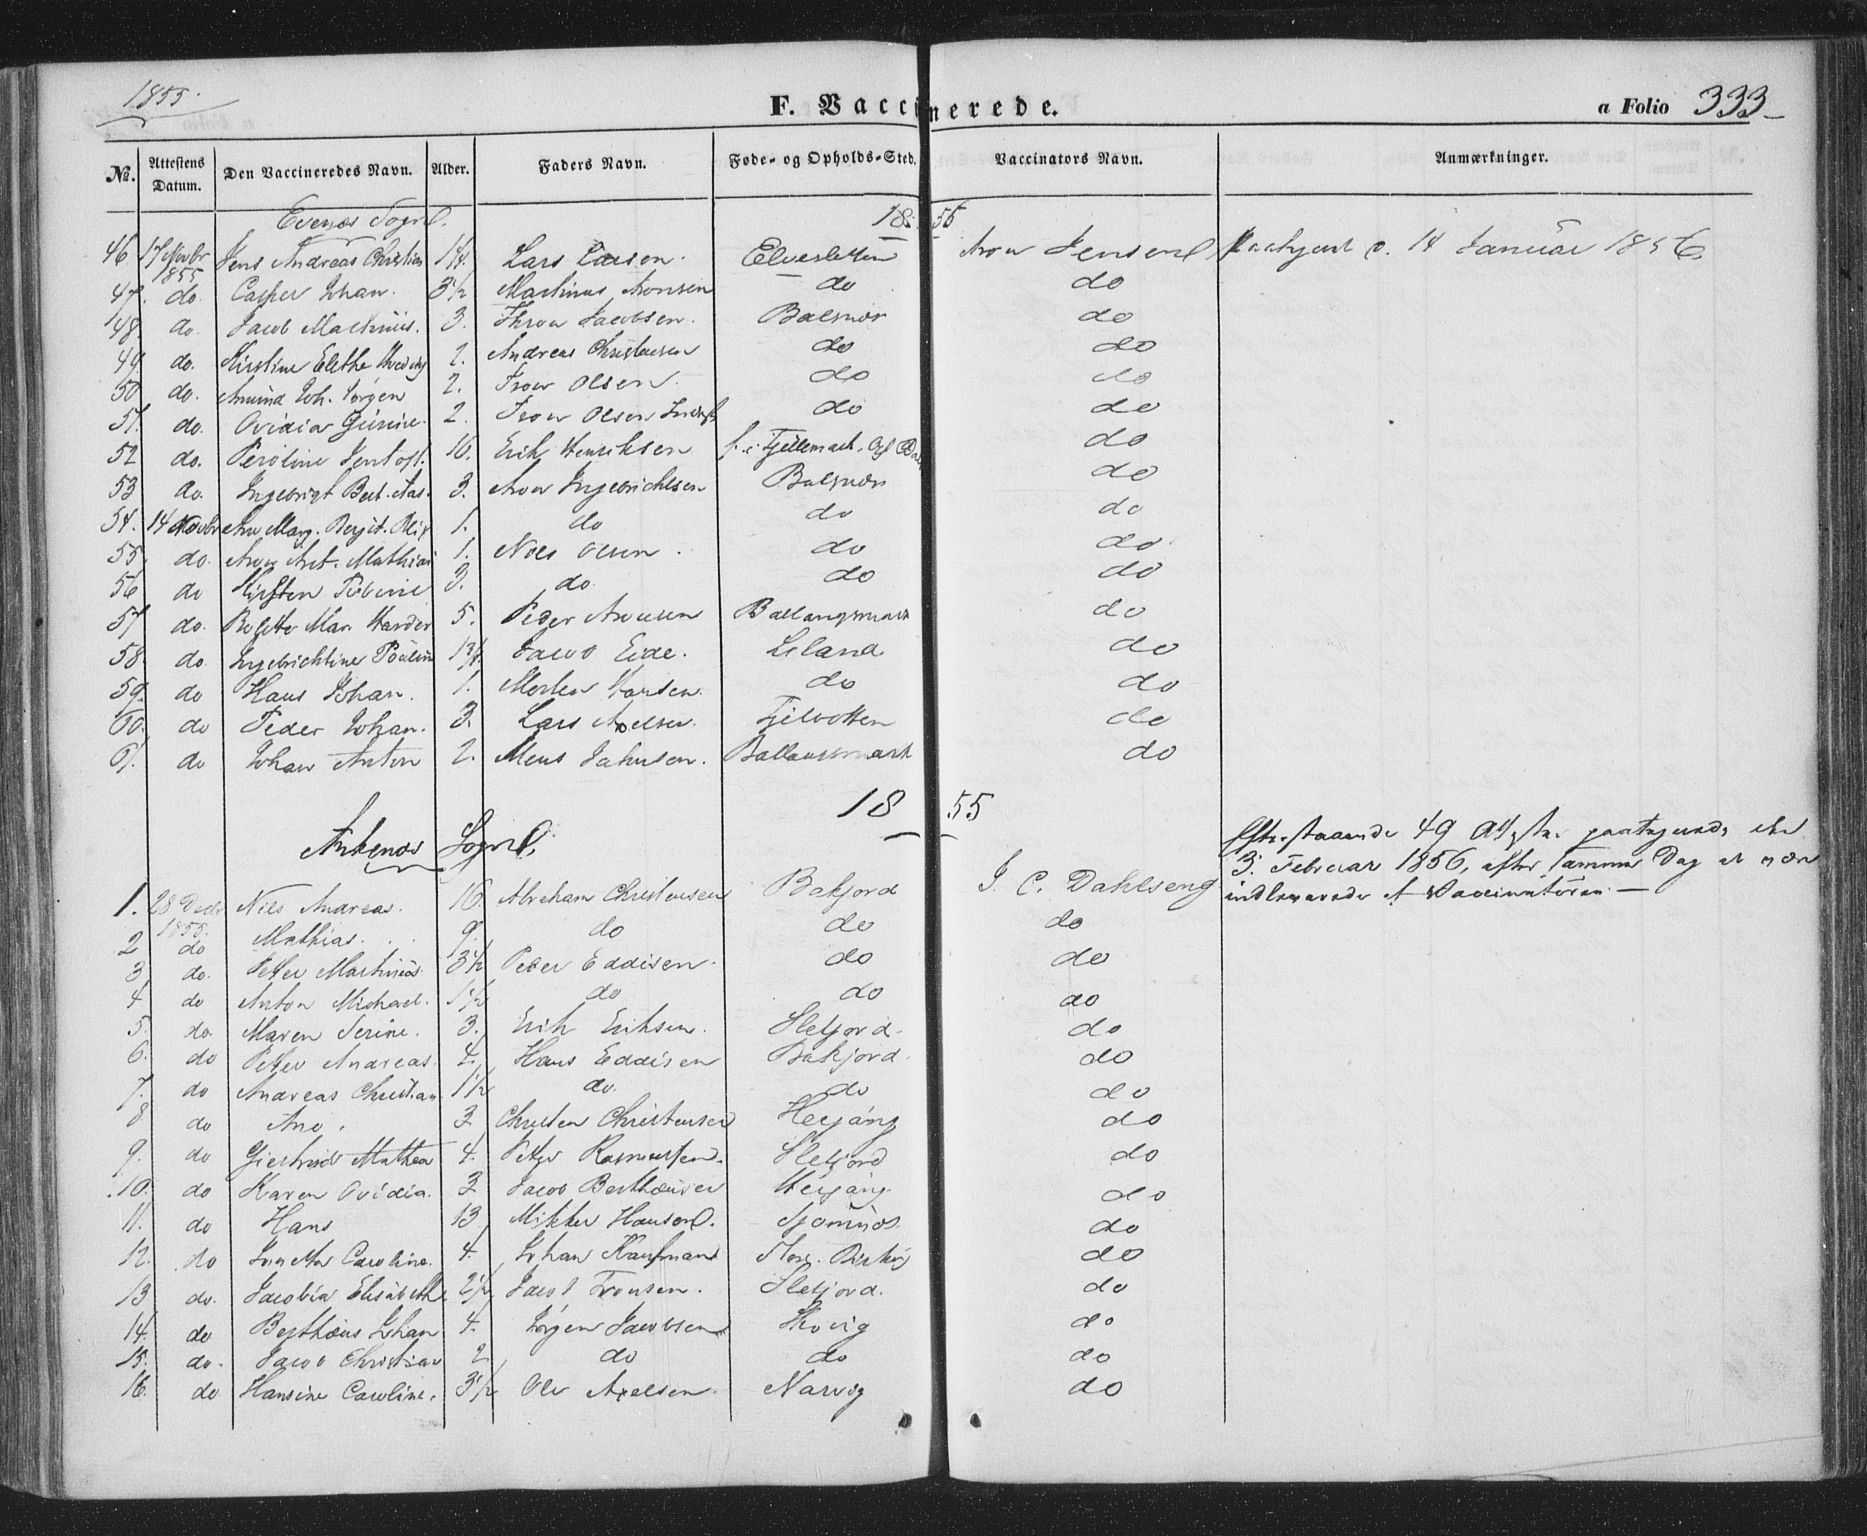 1855.
F. Vaccinerede.
a Folio 333
No. Attestens Datum. Den Vaccineredes Navn. Alder. Faders Navn. Føde- og Opholds-Sted. Vaccinators Navn. Anmærkninger.
Evenæs Sogn. 1855
46 17 Novbr 1855 Jens Andreas Christian Lars Larsen. Aron Jensen Paategnet d. 14 Januar 1856
47. do. Casper Johan. 3½ Martinus Aronsen do do
48. do. Jacob Martinus. 3. Jacobsen. Balsnær do
49. do. Kirstine Elethe Hedvig 2. Andreas Christensen do do
50 do. Amund Joh. Jørgen 2. Iver Olsen. do do
51. do. Ovidia Gurine. 2. Iver Olsen do do
52 do. Peroline Jentoft. 16. Erik Henriksen f. i Fjellemark. do
53 do. Ingebrigt Bert. Aas. 3. Aron Ingebrichtsen Balsnær do
54. 14 Novbr Ane Marg. Bergit. 1. do do do
55. do. Aron Ant. Mathias 1. Nils Olsen. do do
56 do Kirsten 3. do. do do
57 do. Mar. Harder 5. Peder Aronsen Ballangsmark do
58. do. Ingebrichtine Pauline Jacob Eide. Leland do
59. do Hans Johan. 1. Morten Hansen. do do
60. do Peder Johan. 3. Lars Axelsen. do
61. do Johan Anton 2. Mons Johnsen. Ballangsmark do
Ankenæs Sogn. 1855
Efterstaaende 49 Attester paategnede den
3. Februar 1856, efter samme Dag at være
indleverede af Vaccinatøren. —
1. 28 Decbr 1855. Nils Andreas. 16 Abraham Christensen Bekjord J. C. Dahlseng
2 do Mathias. 9. do do do
3 do. Peter Martinus. 3½ Peder Eddisen. do do
4 do Anton Michael. 1½ do do do
5. do. Maren Serine. 3. Erik Eriksen. do
6. do Peter Andreas. 4. Hans Eddisen Bekjord. do
7. do Andreas Christian 1½ do. do do
8 do Ane. 3 Christen Christensen Herjang do
9. do Giertrud Mathea 4. Peter Rasmussen. do
10. do Karen Ovidia. 3 Jacob Berthæusen Herjang. do
11. do Hans 13 Mikkel Hansen. do
12. do Caroline. 4. Johan Kaufmand do
13 do. Jacobia Elisabeth 2½ Jacob Tronsen. do
14. do Berthæus Johan 4. Jørgen Jacobsen Skovig do
15. do. Jacob Christian 2 do do do
16. do Hansine Caroline. 3½ Ole Axelsen. Narvig do